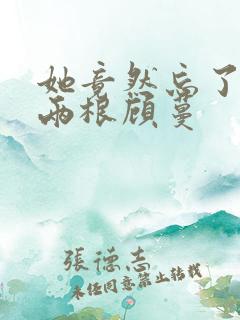 她竟然忘了
两根顾蔓
張德志
未经同意禁止转载